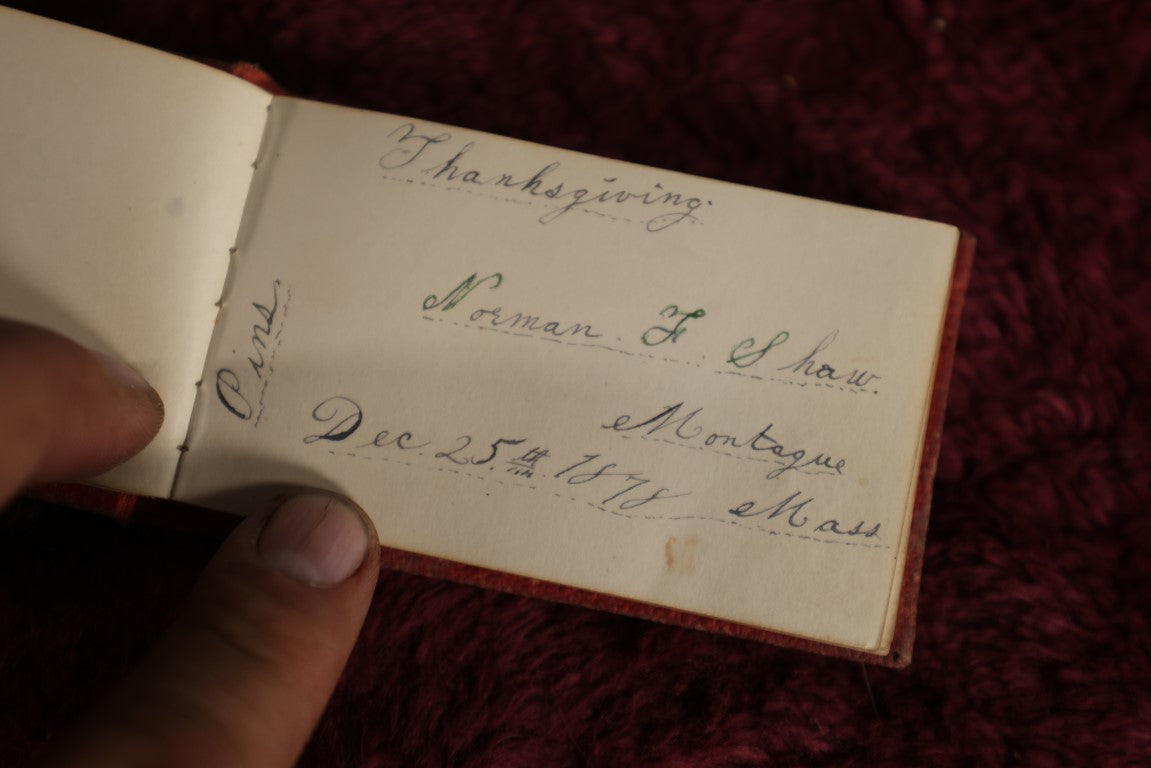 Thanksgiving.
Norman. F. Shaw.
Montague
Dec. 25th. 1878 Mass
Pins.